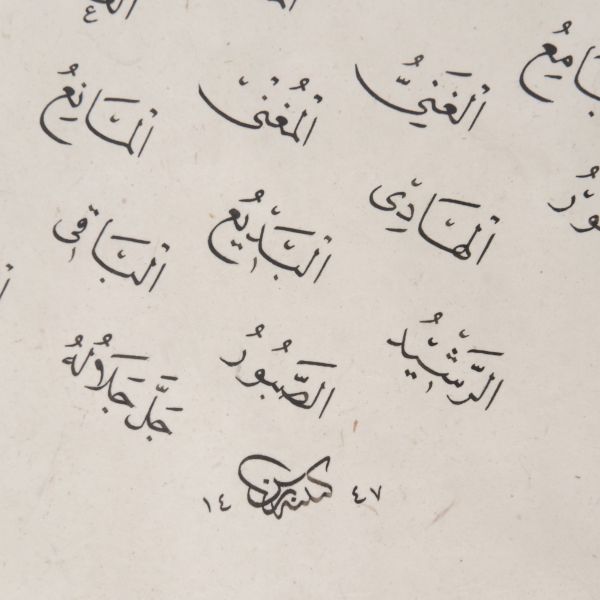 ـامِعُ اَلْغَنِيُّ اَلْمُغْنِى اَلْمَانِعُ
ـورُ اَلْهَادِى اَلْبَدِيعُ اَلْبَاقِى
اَلرَّشِيدُ اَلصَّبُورُ جَلَّ جَلَالُهُ
١٤ ٤٧